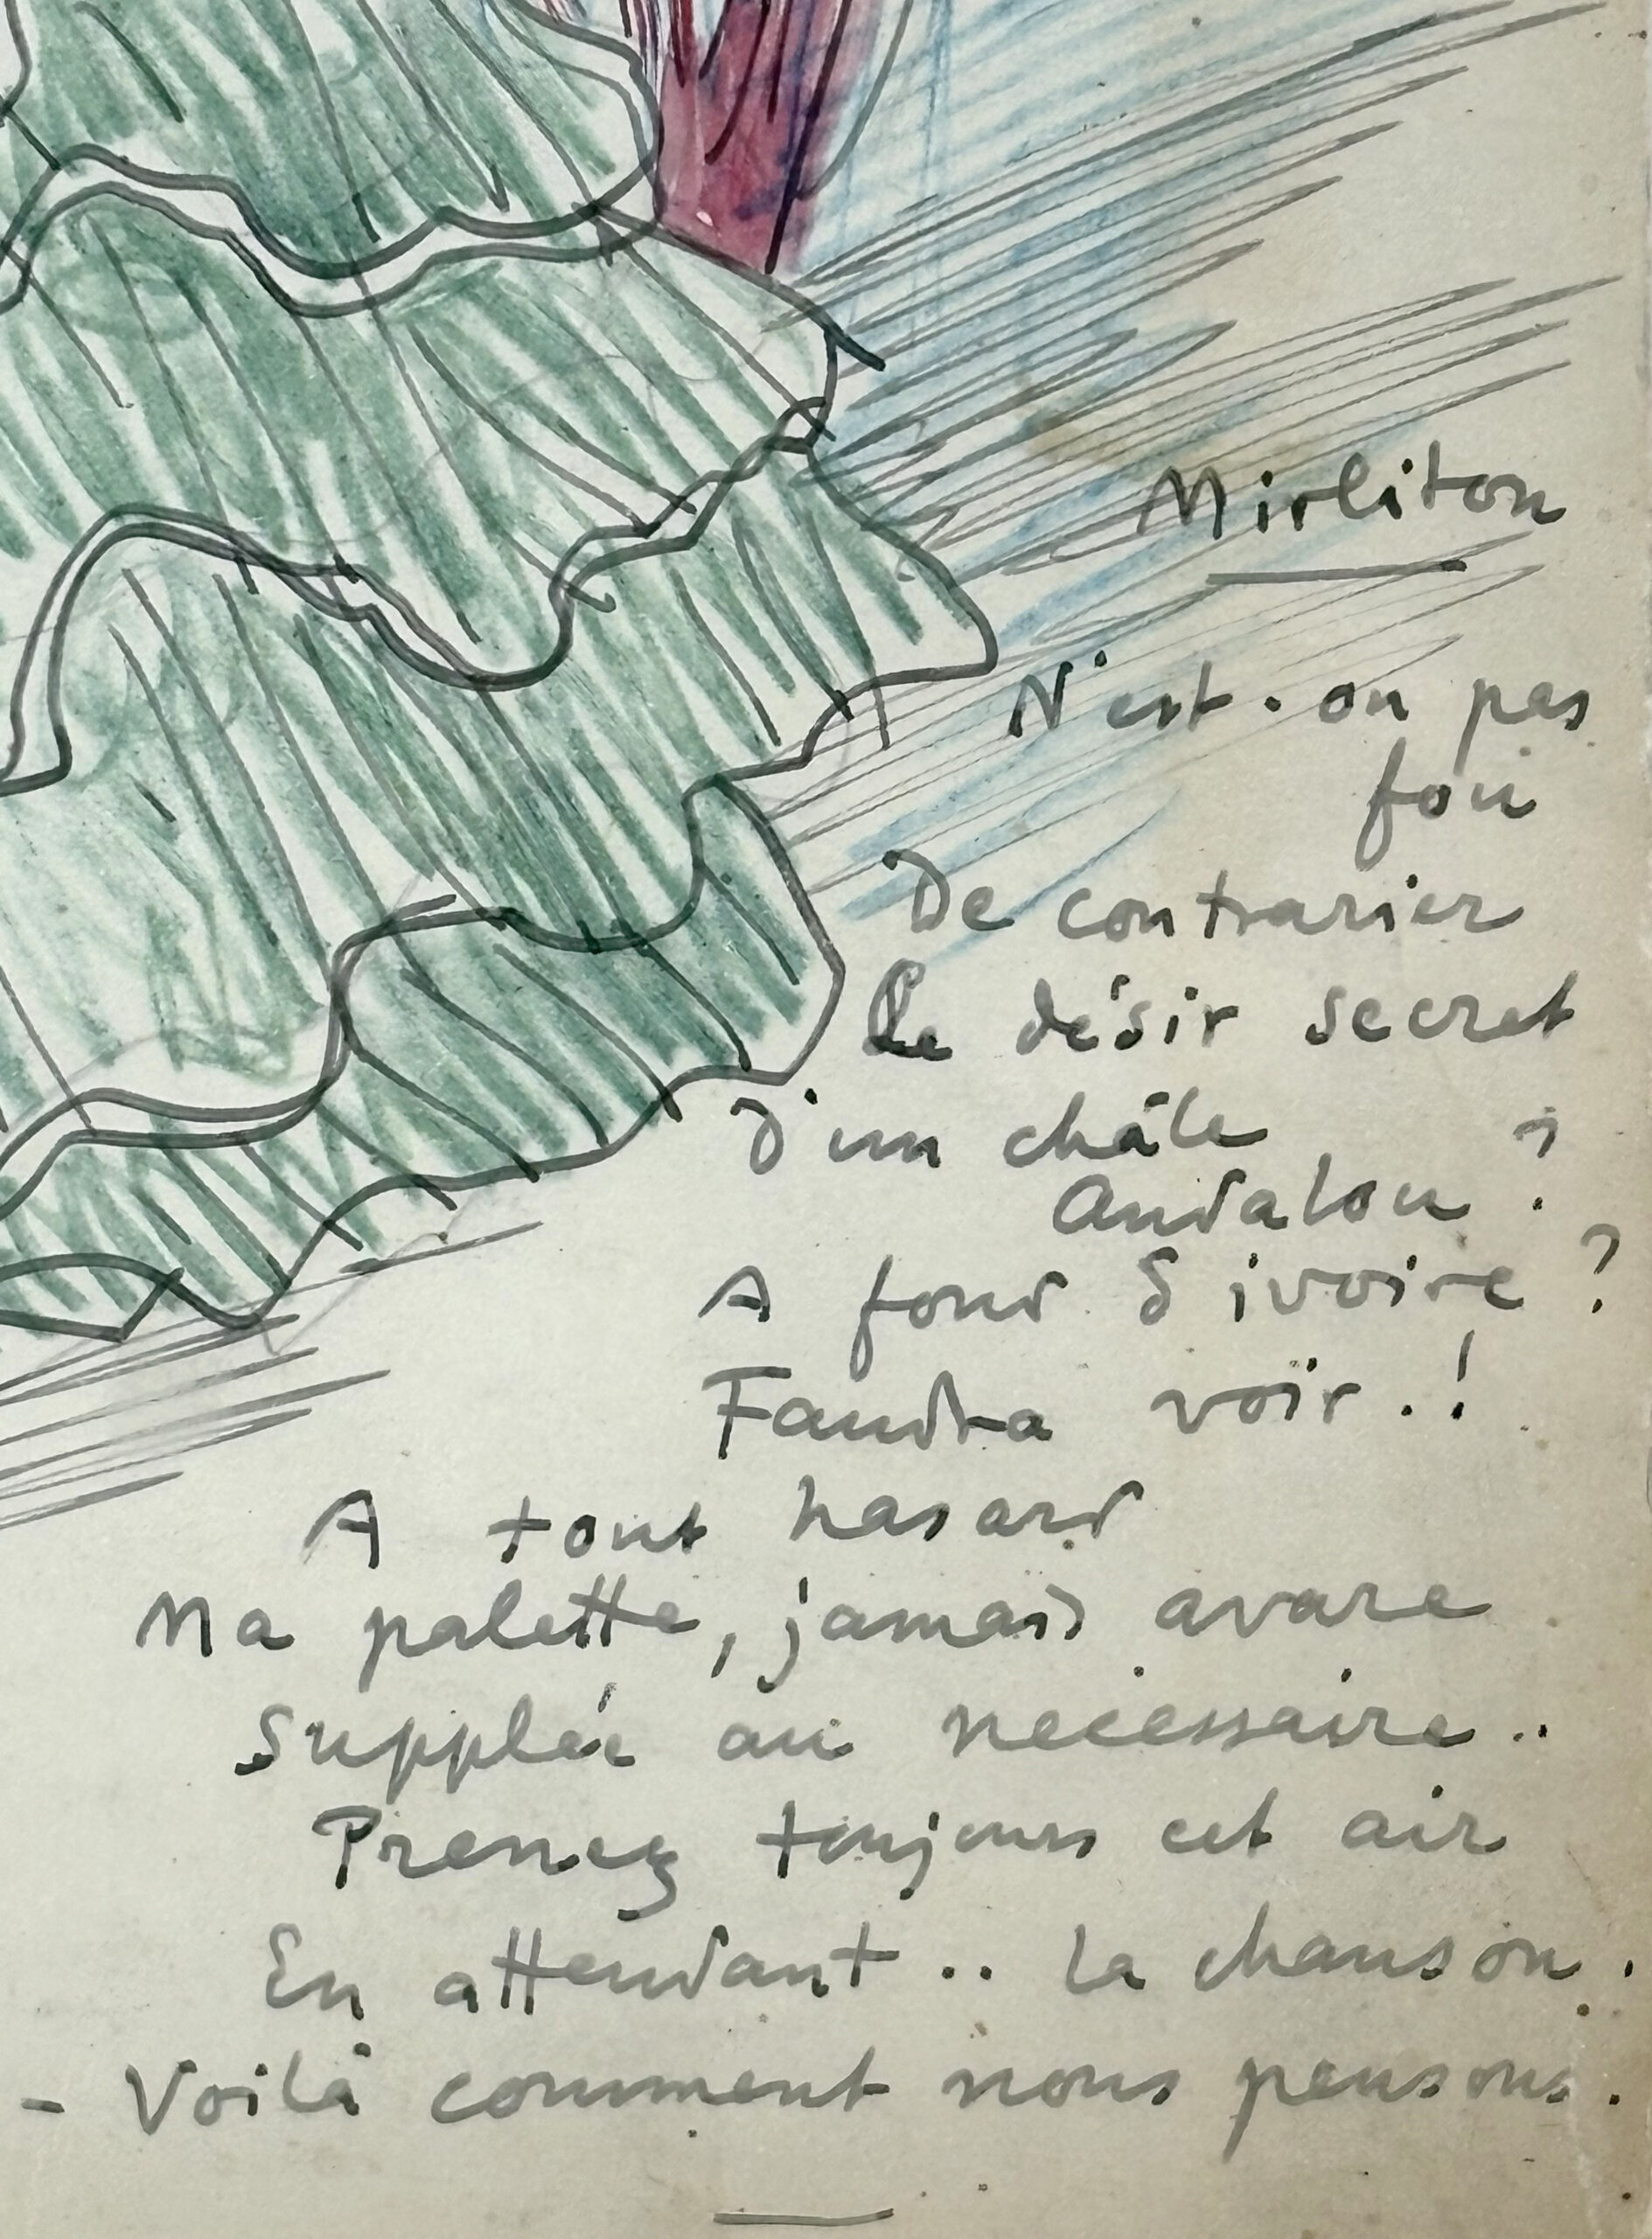 Mirliton
N'est-on pas
fou
De contrarier
Le désir secret
D'un châle
Andalou ?
A fond d'ivoire ?
Faudra voir.!
A tout hasard
Ma palette, jamais avare
Supplée au nécessaire..
Prenez toujours cet air
En attendant .. la chanson.
- Voilà comment nous pensons.